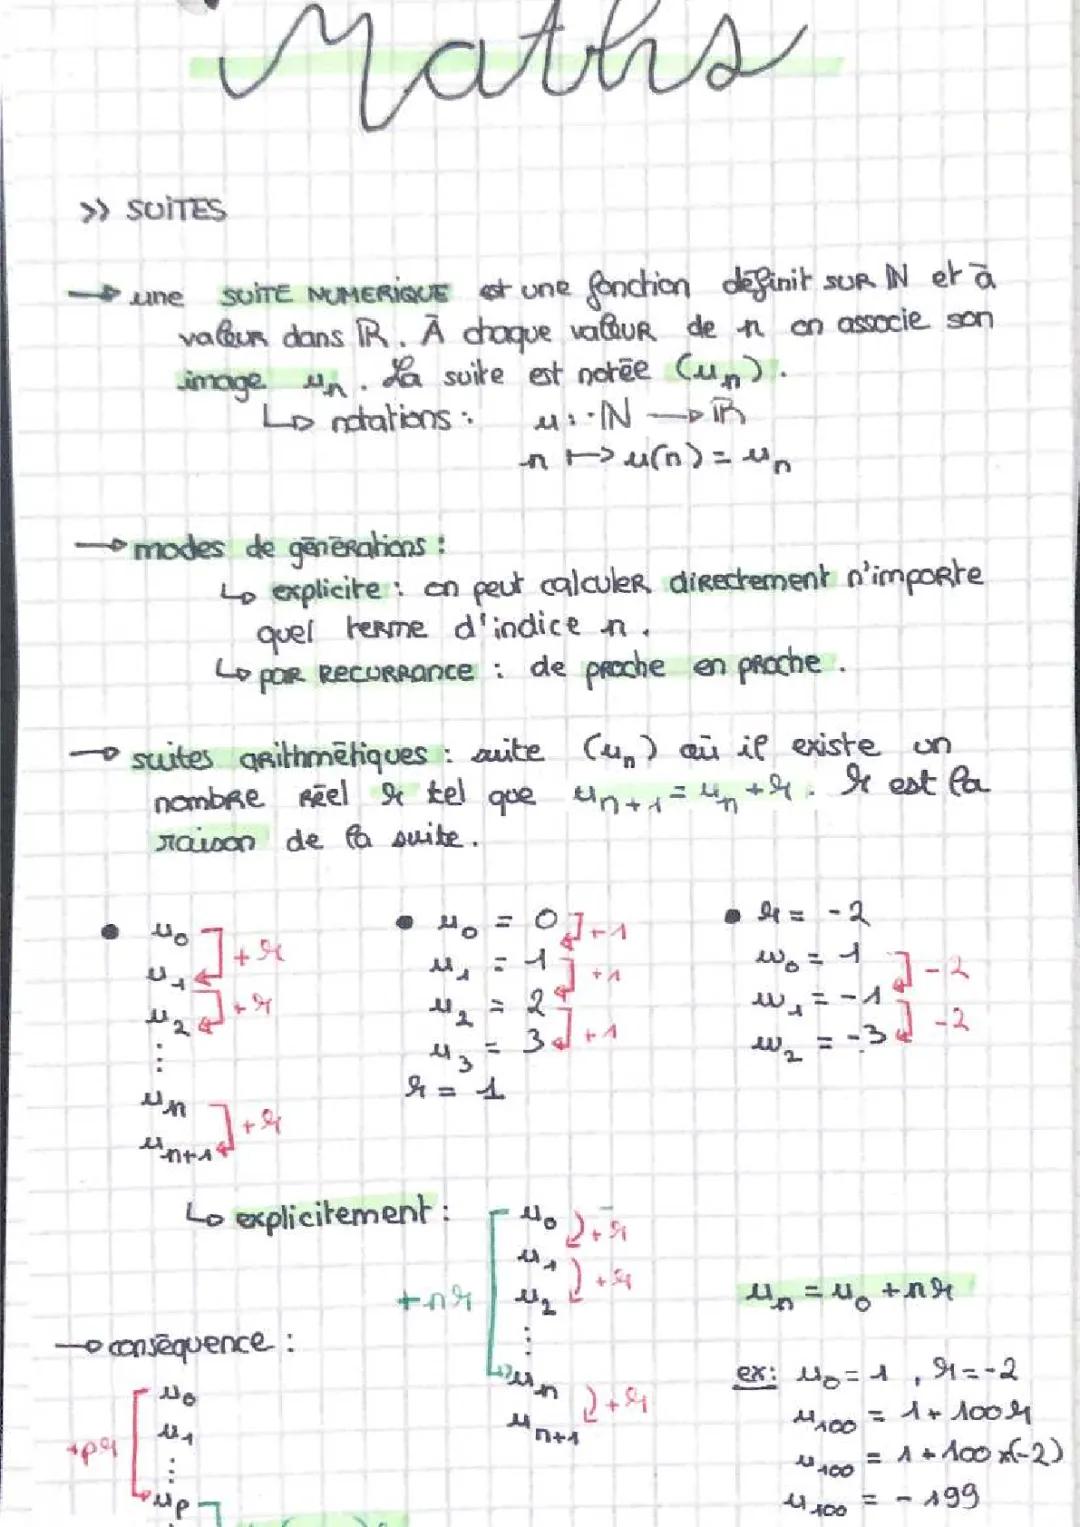 Maths
>> SUITES
→ une SUITE NUMERIQUE est une fonction définit SUR ℕ et à
valeur dans ℝ. À chaque valeur de n on associe son
image uₙ. La suite est notée (uₙ).
↳ notations : u : ℕ → ℝ
n ↦ u(n) = uₙ
→ modes de générations :
↳ explicite : on peut calculer directement n'importe
quel terme d'indice n.
↳ par RECURRANCE : de proche en proche.
→ suites arithmétiques : suite (uₙ) où il existe un
nombre réel r tel que uₙ₊₁ = uₙ + r. r est la
raison de la suite.
• u₀
u₁
u₂
⋮
uₙ
uₙ₊₁
+r
+r
+r
• u₀ = 0
u₁ = 1
u₂ = 2
u₃ = 3
r = 1
+1
+1
+1
• r = -2
w₀ = 1
w₁ = -1
w₂ = -3
-2
-2
↳ explicitement :
u₀
u₁
u₂
⋮
uₙ
uₙ₊₁
+r
+r
+r
+nr
uₙ = u₀ + nr
ex: u₀ = 1, r = -2
u₁₀₀ = 1 + 100r
u₁₀₀ = 1 + 100×(-2)
u₁₀₀ = -199
→ conséquence :
u₀
u₁
⋮
uₚ
+pr